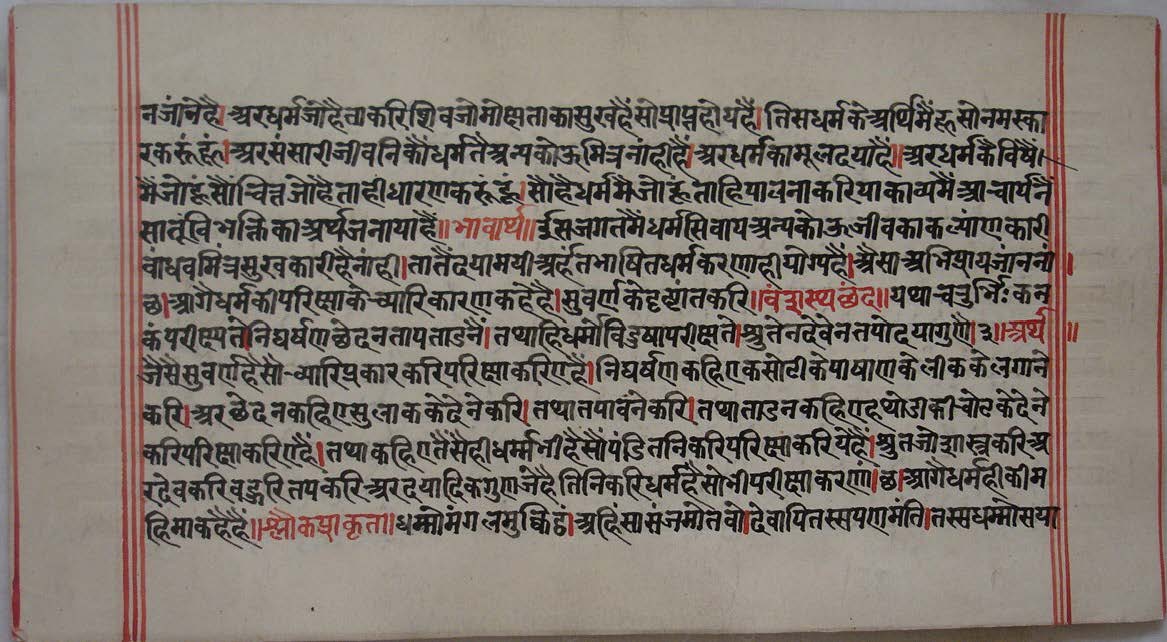 नजांनेहै। अरधर्मजोहैताकरिशिवजोमोक्षताकासुखहैसोप्राप्तहोयहै। तिसधर्मकेअर्थिमैंहूसोनमस्का
रकरूंहूं। अरसंसारीजीवनिकौधर्मतैअन्यकोऊमित्रनांहीहै। अरधर्मकामूलदयाहै॥ अरधर्मकैविषै।
मैजोहूंसोचित्तजोहैताहीधारणकरूंहूं। सौहैधर्ममैजोहूंताहिपालनाकरियाकाव्यमैंआचार्यनै
सातूंविभक्तिकाअर्थजनायाहै॥ भावार्थ॥ ईसजगतमैंधर्मसिवायअन्यकोऊजीवकाकल्याणकारी
बांधवमित्रसुखकारीहैनांही। तातैंदयामयीअर्हंतभाषितधर्मकरणाहीयोग्यहै। अैसाअभिप्रायजांननां।
छ। आगैधर्मकीपरिक्षाकेच्यारिकारणकहैहै। सुवर्णकेदृष्टांतकरि॥ वंशस्थछंद॥ यथाचतुर्भिःकन
कंपरीक्ष्यतेनिघर्षणछेदनतापताडनैं। तथाहिधर्मोविदुषापरीक्षते। श्रुतेनदेवेनतपोदयागुणैः। ३॥ अर्थ॥
जैसैसुवर्णहैसोच्यारिप्रकारकरिपरिक्षाकरिएहै। निघर्षणकहिएकसोटीकेपाषाणकेलीककेलगाने
करि। अरछेदनकहिएसुलाककेदेनेकरि। तथातपावनेकरि। तथाताडनकहिएहथोडाकीचोटकेदेने
करिपरिक्षाकरिएहै। तथाकहिएतैसैहीधर्म्मभीहैसोपंडितनिकरिपरिक्षाकरियेहै। श्रुतजोशास्त्रकरिअ
रदेवकरिबहुरितपकरिअरदयादिकगुणजेहैतिनिकरिधर्महैसोभीपरीक्षाकरणां। छ। आगैधर्महीकीम
हिमाकहैहै॥ श्लोकप्राकृत॥ धम्मोमंगलमुक्किठं। अहिंसासंजमोतवो। देवापितस्सपणमंति। तस्सधम्मोसया